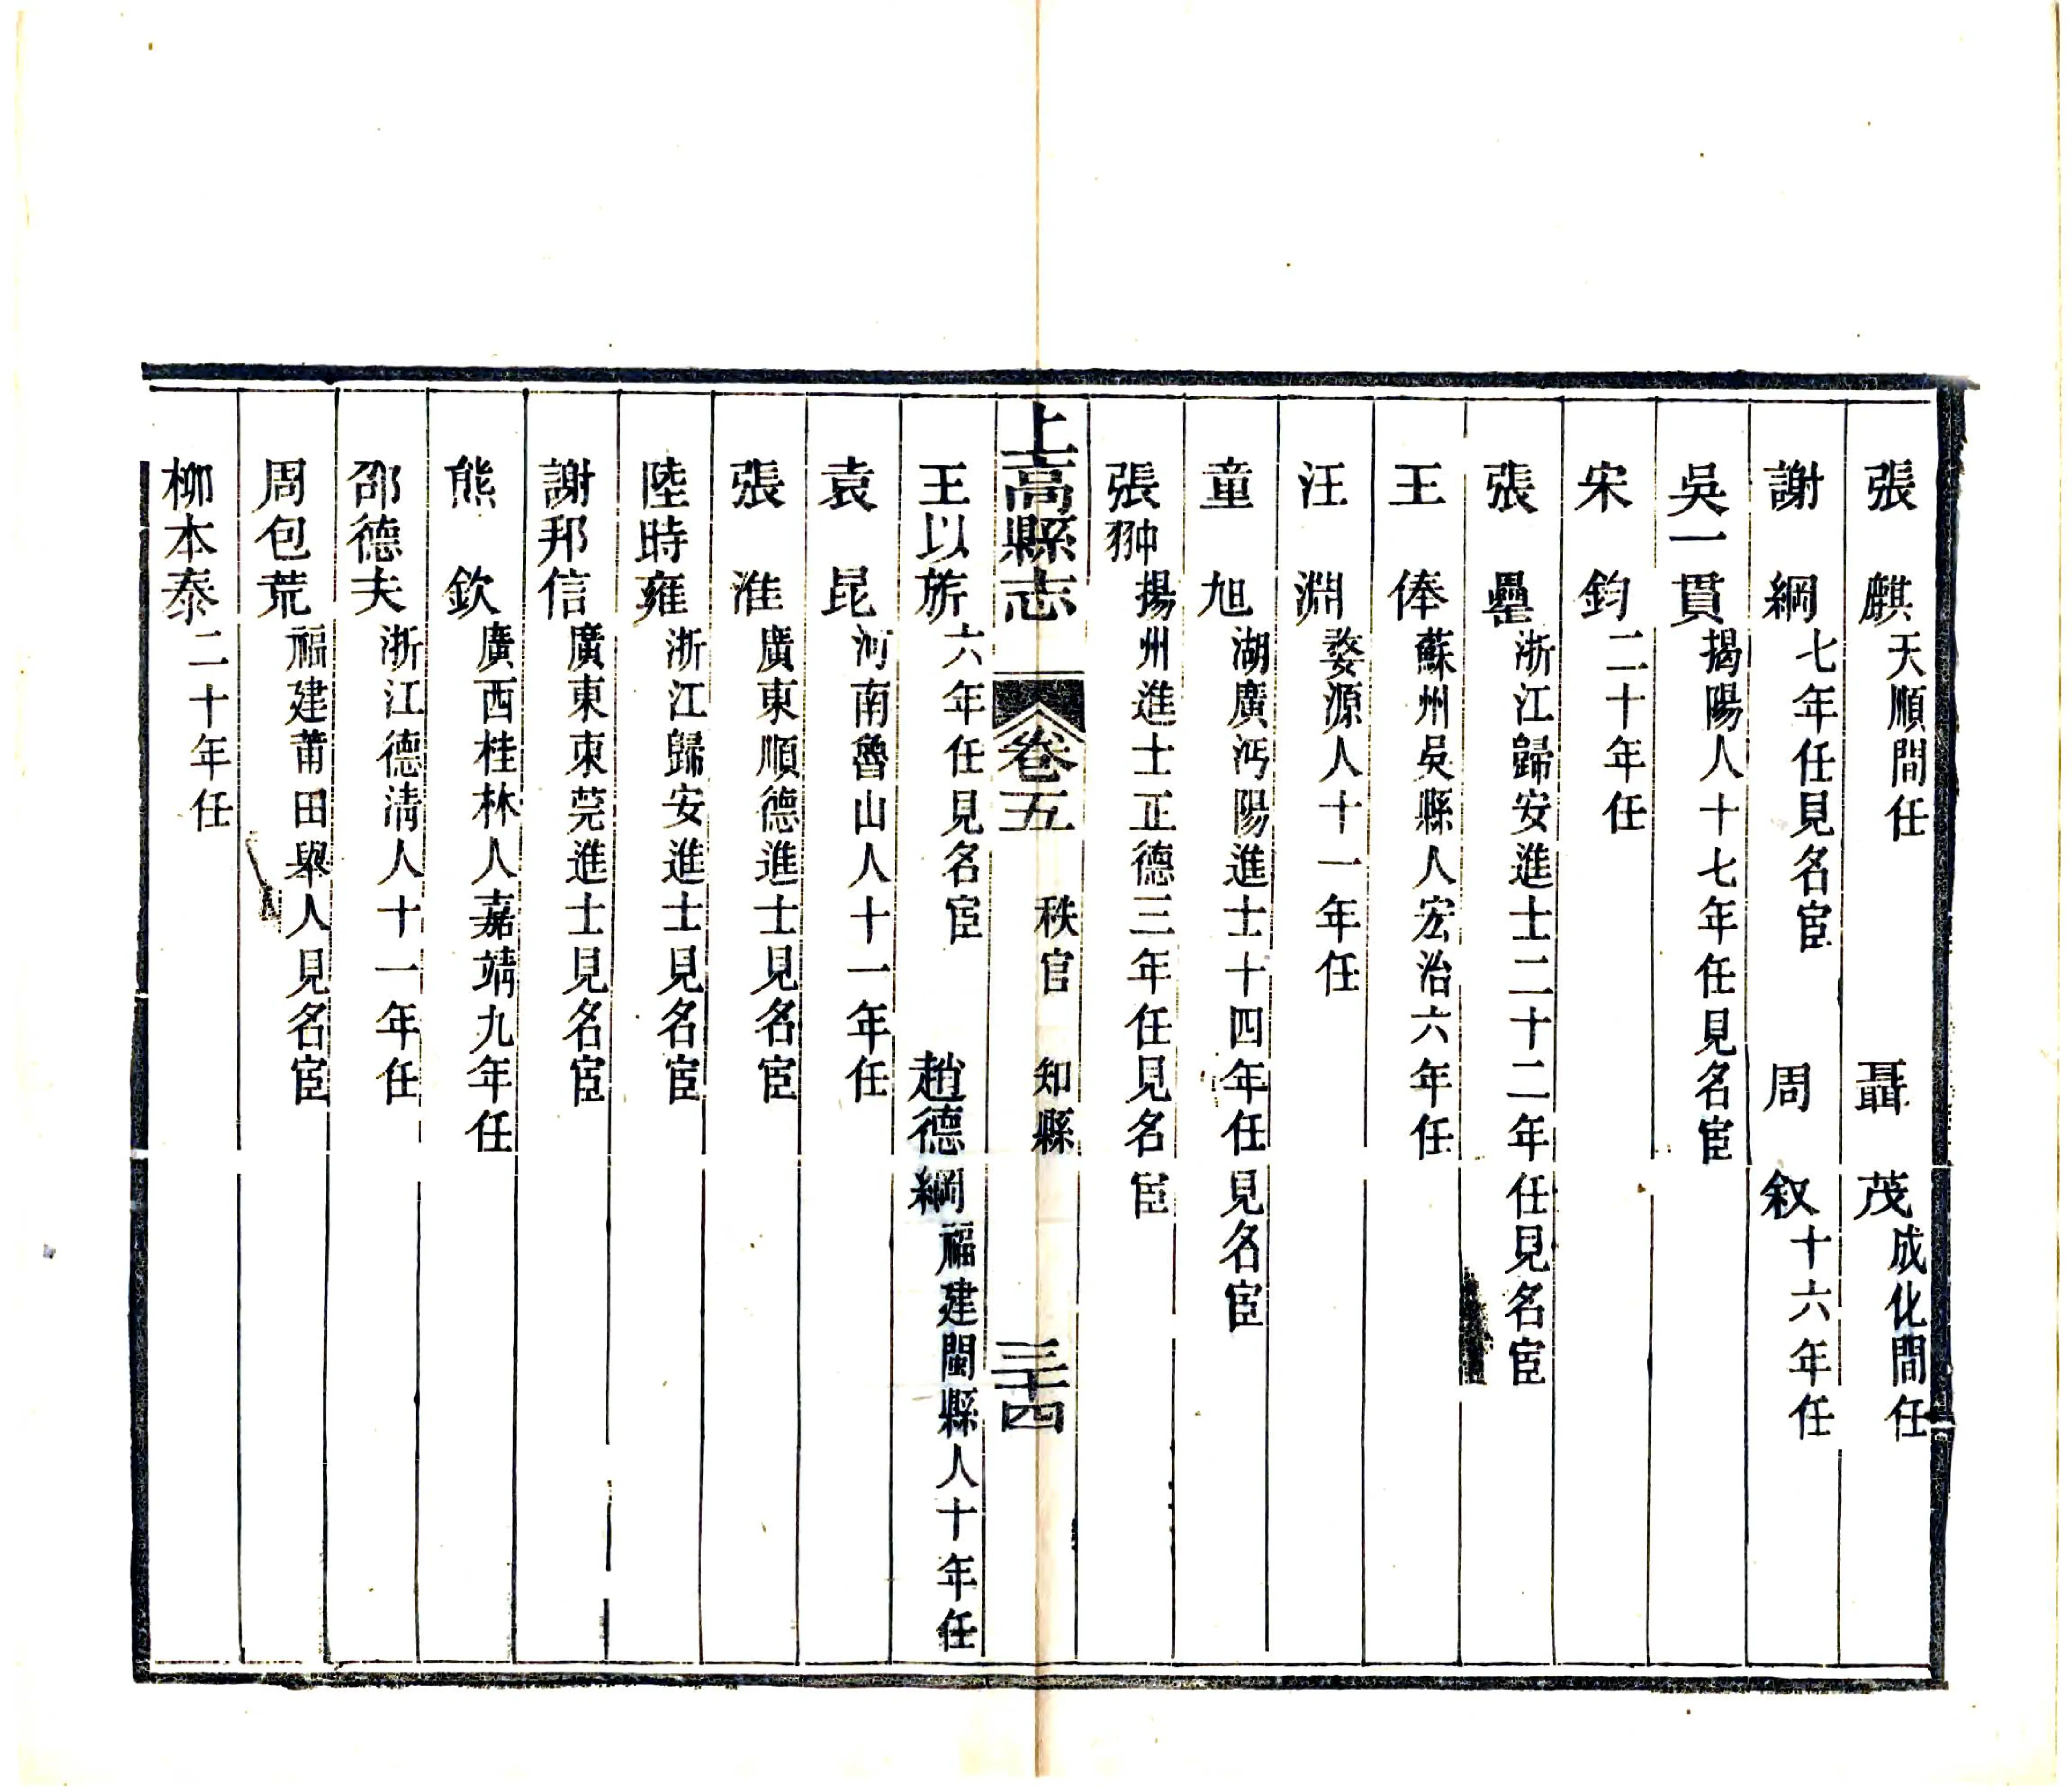 張　麒天順間任　聶　茂成化間任
謝　綱七年任見名宦　周　叙十六年任
吳一貫揭陽人十七年任見名宦
宋　鈞二十年任
張　壘浙江歸安進士二十二年任見名宦
王　俸蘇州吳縣人宏治六年任
汪　淵婺源人十一年任
童　旭湖廣沔陽進士十四年任見名宦
張翀揚州進士正德三年任見名宦
上高縣志　卷五　秩官　知縣　三十四
王以旂六年任見名宦　趙德綱福建閩縣人十年任
袁　昆河南魯山人十一年任
張　淮廣東順德進士見名宦
陸時雍浙江歸安進士見名宦
謝邦信廣東東莞進士見名宦
熊　欽廣西桂林人嘉靖九年任
邵德夫浙江德清人十一年任
周包荒福建莆田舉人見名宦
柳本泰二十年任